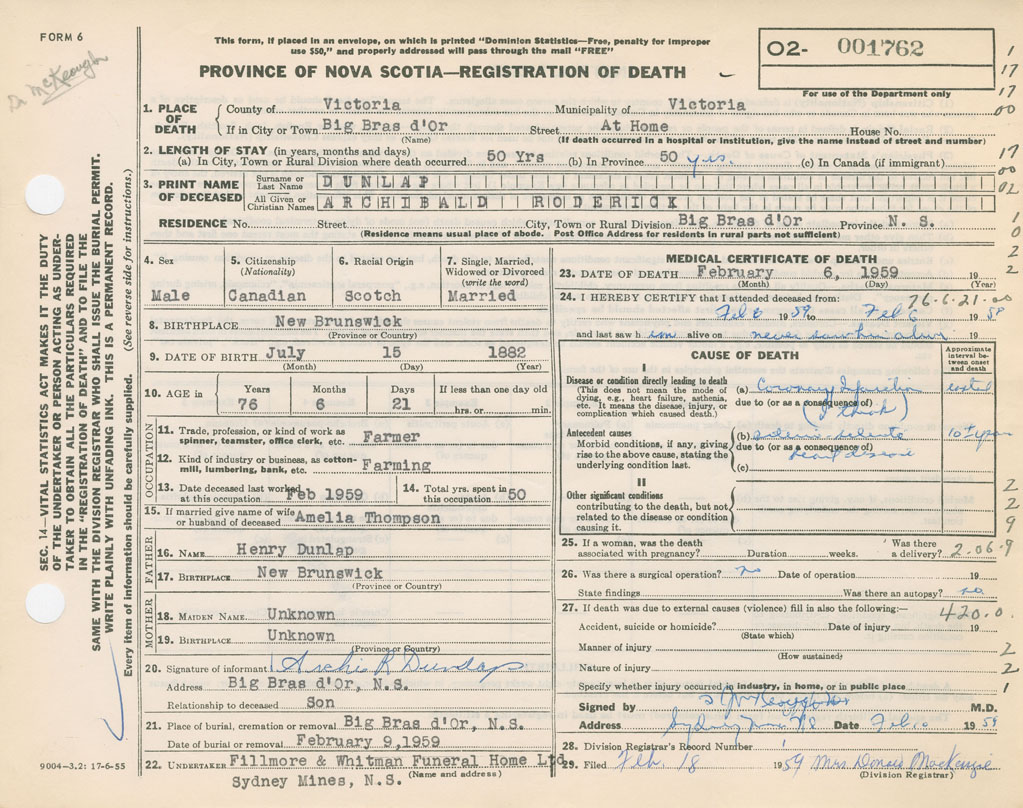 FORM 6
Dr McKeough
This form, if placed in an envelope, on which is printed "Dominion Statistics—Free, penalty for improper
use $50," and properly addressed will pass through the mail "FREE"
PROVINCE OF NOVA SCOTIA—REGISTRATION OF DEATH
02- 001762
For use of the Department only
1
17
17
00
17
00
02
1
0
2
2
SEC. 14—VITAL STATISTICS ACT MAKES IT THE DUTY
OF THE UNDERTAKER OR PERSON ACTING AS UNDER-
TAKER TO OBTAIN ALL THE PARTICULARS REQUIRED
IN THE "REGISTRATION OF DEATH" AND TO FILE THE
SAME WITH THE DIVISION REGISTRAR WHO SHALL ISSUE THE BURIAL PERMIT.
WRITE PLAINLY WITH UNFADING INK. THIS IS A PERMANENT RECORD.
Every item of information should be carefully supplied. (See reverse side for instructions.)
1. PLACE OF DEATH
County of Victoria Municipality of Victoria
If in City or Town Big Bras d'Or Street At Home House No.
(Name) (If death occurred in a hospital or institution, give the name instead of street and number)
2. LENGTH OF STAY (in years, months and days)
(a) In City, Town or Rural Division where death occurred 50 Yrs (b) In Province 50 yrs. (c) In Canada (if immigrant)
3. PRINT NAME OF DECEASED
Surname or Last Name DUNLAP
All Given or Christian Names ARCHIBALD RODERICK
RESIDENCE No. Street City, Town or Rural Division Big Bras d'Or Province N. S.
(Residence means usual place of abode. Post Office Address for residents in rural parts not sufficient)
4. Sex
Male
5. Citizenship (Nationality)
Canadian
6. Racial Origin
Scotch
7. Single, Married, Widowed or Divorced (write the word)
Married
8. BIRTHPLACE New Brunswick
(Province or Country)
9. DATE OF BIRTH July 15 1882
(Month) (Day) (Year)
10. AGE in
Years Months Days If less than one day old
76 6 21 hrs. or min.
OCCUPATION
11. Trade, profession, or kind of work as spinner, teamster, office clerk, etc. Farmer
12. Kind of industry or business, as cotton-mill, lumbering, bank, etc. Farming
13. Date deceased last worked at this occupation Feb 1959
14. Total yrs. spent in this occupation 50
15. If married give name of wife or husband of deceased Amelia Thompson
FATHER
16. NAME Henry Dunlap
17. BIRTHPLACE New Brunswick
(Province or Country)
MOTHER
18. MAIDEN NAME Unknown
19. BIRTHPLACE Unknown
(Province or Country)
20. Signature of informant Archie R Dunlap
Address Big Bras d'Or, N.S.
Relationship to deceased Son
21. Place of burial, cremation or removal Big Bras d'Or, N.S.
Date of burial or removal February 9,1959
22. UNDERTAKER Fillmore & Whitman Funeral Home Ltd
Sydney Mines, N.S. (Name and address)
9004—3.2: 17-6-55
MEDICAL CERTIFICATE OF DEATH
23. DATE OF DEATH February 6, 1959 19
(Month) (Day) (Year)
24. I HEREBY CERTIFY that I attended deceased from: 76-6-21-00
Feb 6 1959 to Feb 6 1959
and last saw h im alive on never saw him alive 19
CAUSE OF DEATH
Approximate interval between onset and death
I
Disease or condition directly leading to death
(This does not mean the mode of dying, e.g., heart failure, asthenia, etc. It means the disease, injury, or complication which caused death.)
(a) Coronary
due to (or as a consequence of)
(I think)
Antecedent causes
Morbid conditions, if any, giving rise to the above cause, stating the underlying condition last.
(b)
due to (or as a consequence of)
heart disease
10 + years
(c)
II
Other significant conditions
contributing to the death, but not related to the disease or condition causing it.
2
2
9
25. If a woman, was the death associated with pregnancy? Duration weeks. Was there a delivery? 2.06.9
26. Was there a surgical operation? no Date of operation 19
State findings Was there an autopsy? no
27. If death was due to external causes (violence) fill in also the following:— 420.0
Accident, suicide or homicide? Date of injury 19
(State which)
Manner of injury 2
(How sustained)
Nature of injury 2
Specify whether injury occurred in industry, in home, or in public place 1
Signed by M.D.
Address Sydney Mines N S Date Feb 1959
28. Division Registrar's Record Number 1
29. Filed Feb. 18 1959 Mrs Donald MacKenzie
(Division Registrar)